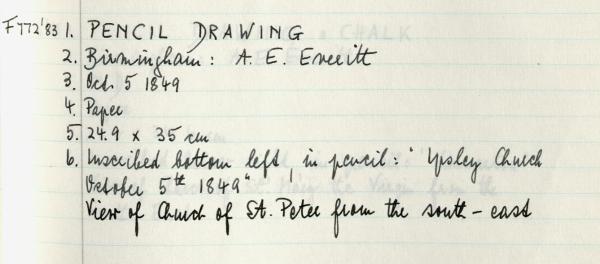 F772'83 1. PENCIL DRAWING
2. Birmingham: A. E. Everitt
3. Oct. 5 1849
4. Paper
5. 24.9 x 35 cm
6. Inscribed bottom left, in pencil: " Ipsley Church
October 5th 1849"
View of Church of St. Peter from the south-east